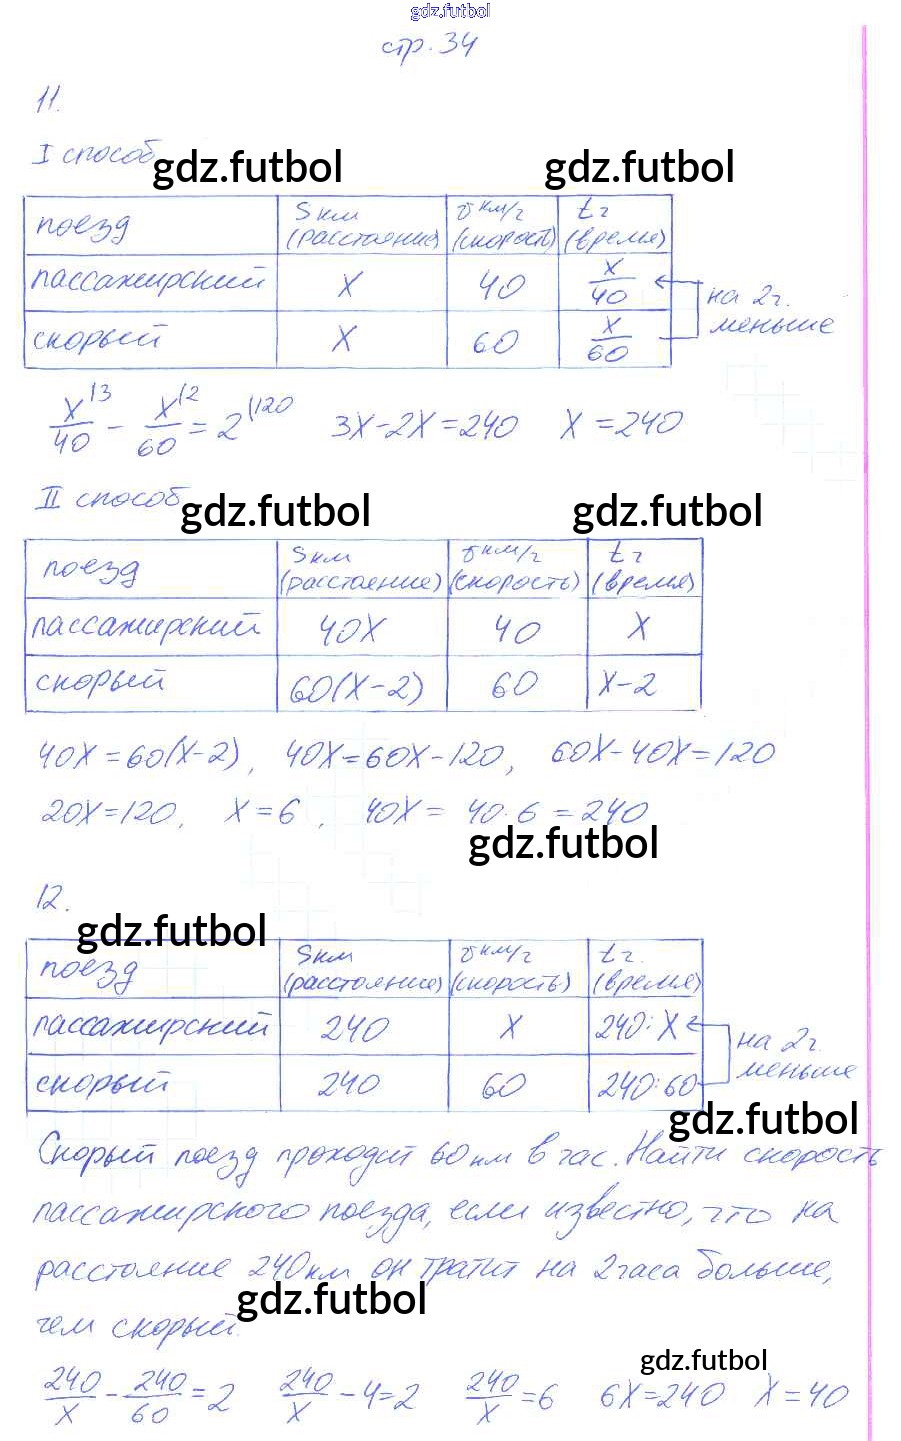 gdz.futbol
стр. 34
11.
I способ
gdz.futbol gdz.futbol
поезд S км (расстояние) v км/ч (скорость) t ч (время)
пассажирский x 40 x/40
скорый x 60 x/60
на 2ч. меньше
x/40 (3 - x/60 (2 = 2 (120 3x-2x=240 x=240
II способ
gdz.futbol gdz.futbol
поезд S км (расстояние) v км/ч (скорость) t ч (время)
пассажирский 40x 40 x
скорый 60(x-2) 60 x-2
40x=60(x-2), 40x=60x-120, 60x-40x=120
20x=120, x=6, 40x= 40·6=240
gdz.futbol
12.
gdz.futbol
поезд S км (расстояние) v км/ч (скорость) t ч. (время)
пассажирский 240 x 240:x
скорый 240 60 240:60
на 2ч. меньше
gdz.futbol
Скорый поезд проходит 60 км в час. Найти скорость
пассажирского поезда, если известно, что на
расстояние 240 км он тратит на 2 часа больше,
gdz.futbol
чем скорый.
gdz.futbol
240/x - 240/60 = 2 240/x - 4=2 240/x =6 6x=240 x=40